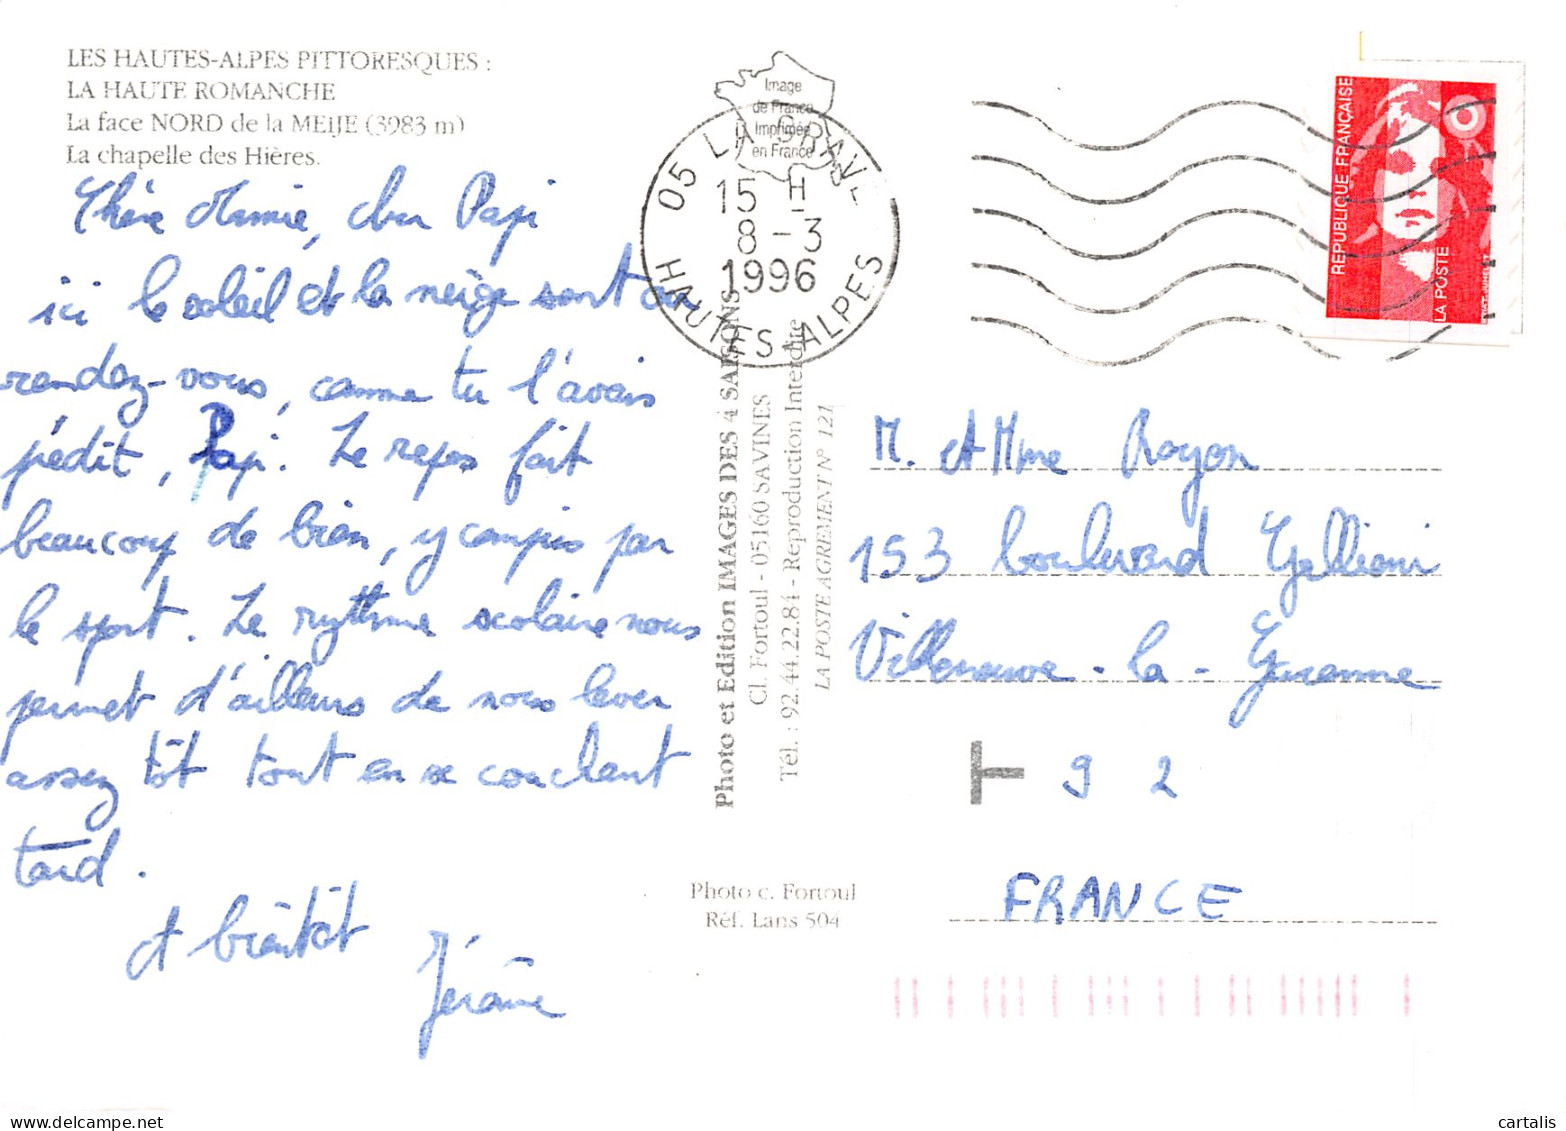 LES HAUTES-ALPES PITTORESQUES :
LA HAUTE ROMANCHE
La face NORD de la MEIJE (3983 m)
La chapelle des Hières.
Chère Mamie, cher Papi
ici le soleil et la neige sont au
rendez-vous, comme tu l'avais
prédit, Papi. Le repos fait
beaucoup de bien, y compris par
le sport. Le rythme scolaire nous
permet d'ailleurs de nous lever
assez tôt tout en se couchant
tard.
A bientôt
Jérôme
Image
de France
Imprimée
en France
05 LA GRAVE
15 H
8-3
1996
HAUTES-ALPES
Photo et Edition IMAGES DES 4 SAISONS
Cl. Fortoul - 05160 SAVINES
Tél. : 92.44.22.84 - Reproduction Interdite
LA POSTE AGREMENT N° 121
Photo c. Fortoul
Réf. Lans 504
REPUBLIQUE FRANÇAISE
LA POSTE
M. et Mme Royon
153 boulevard Gallieni
Villeneuve-la-Garenne
T 9 2
FRANCE